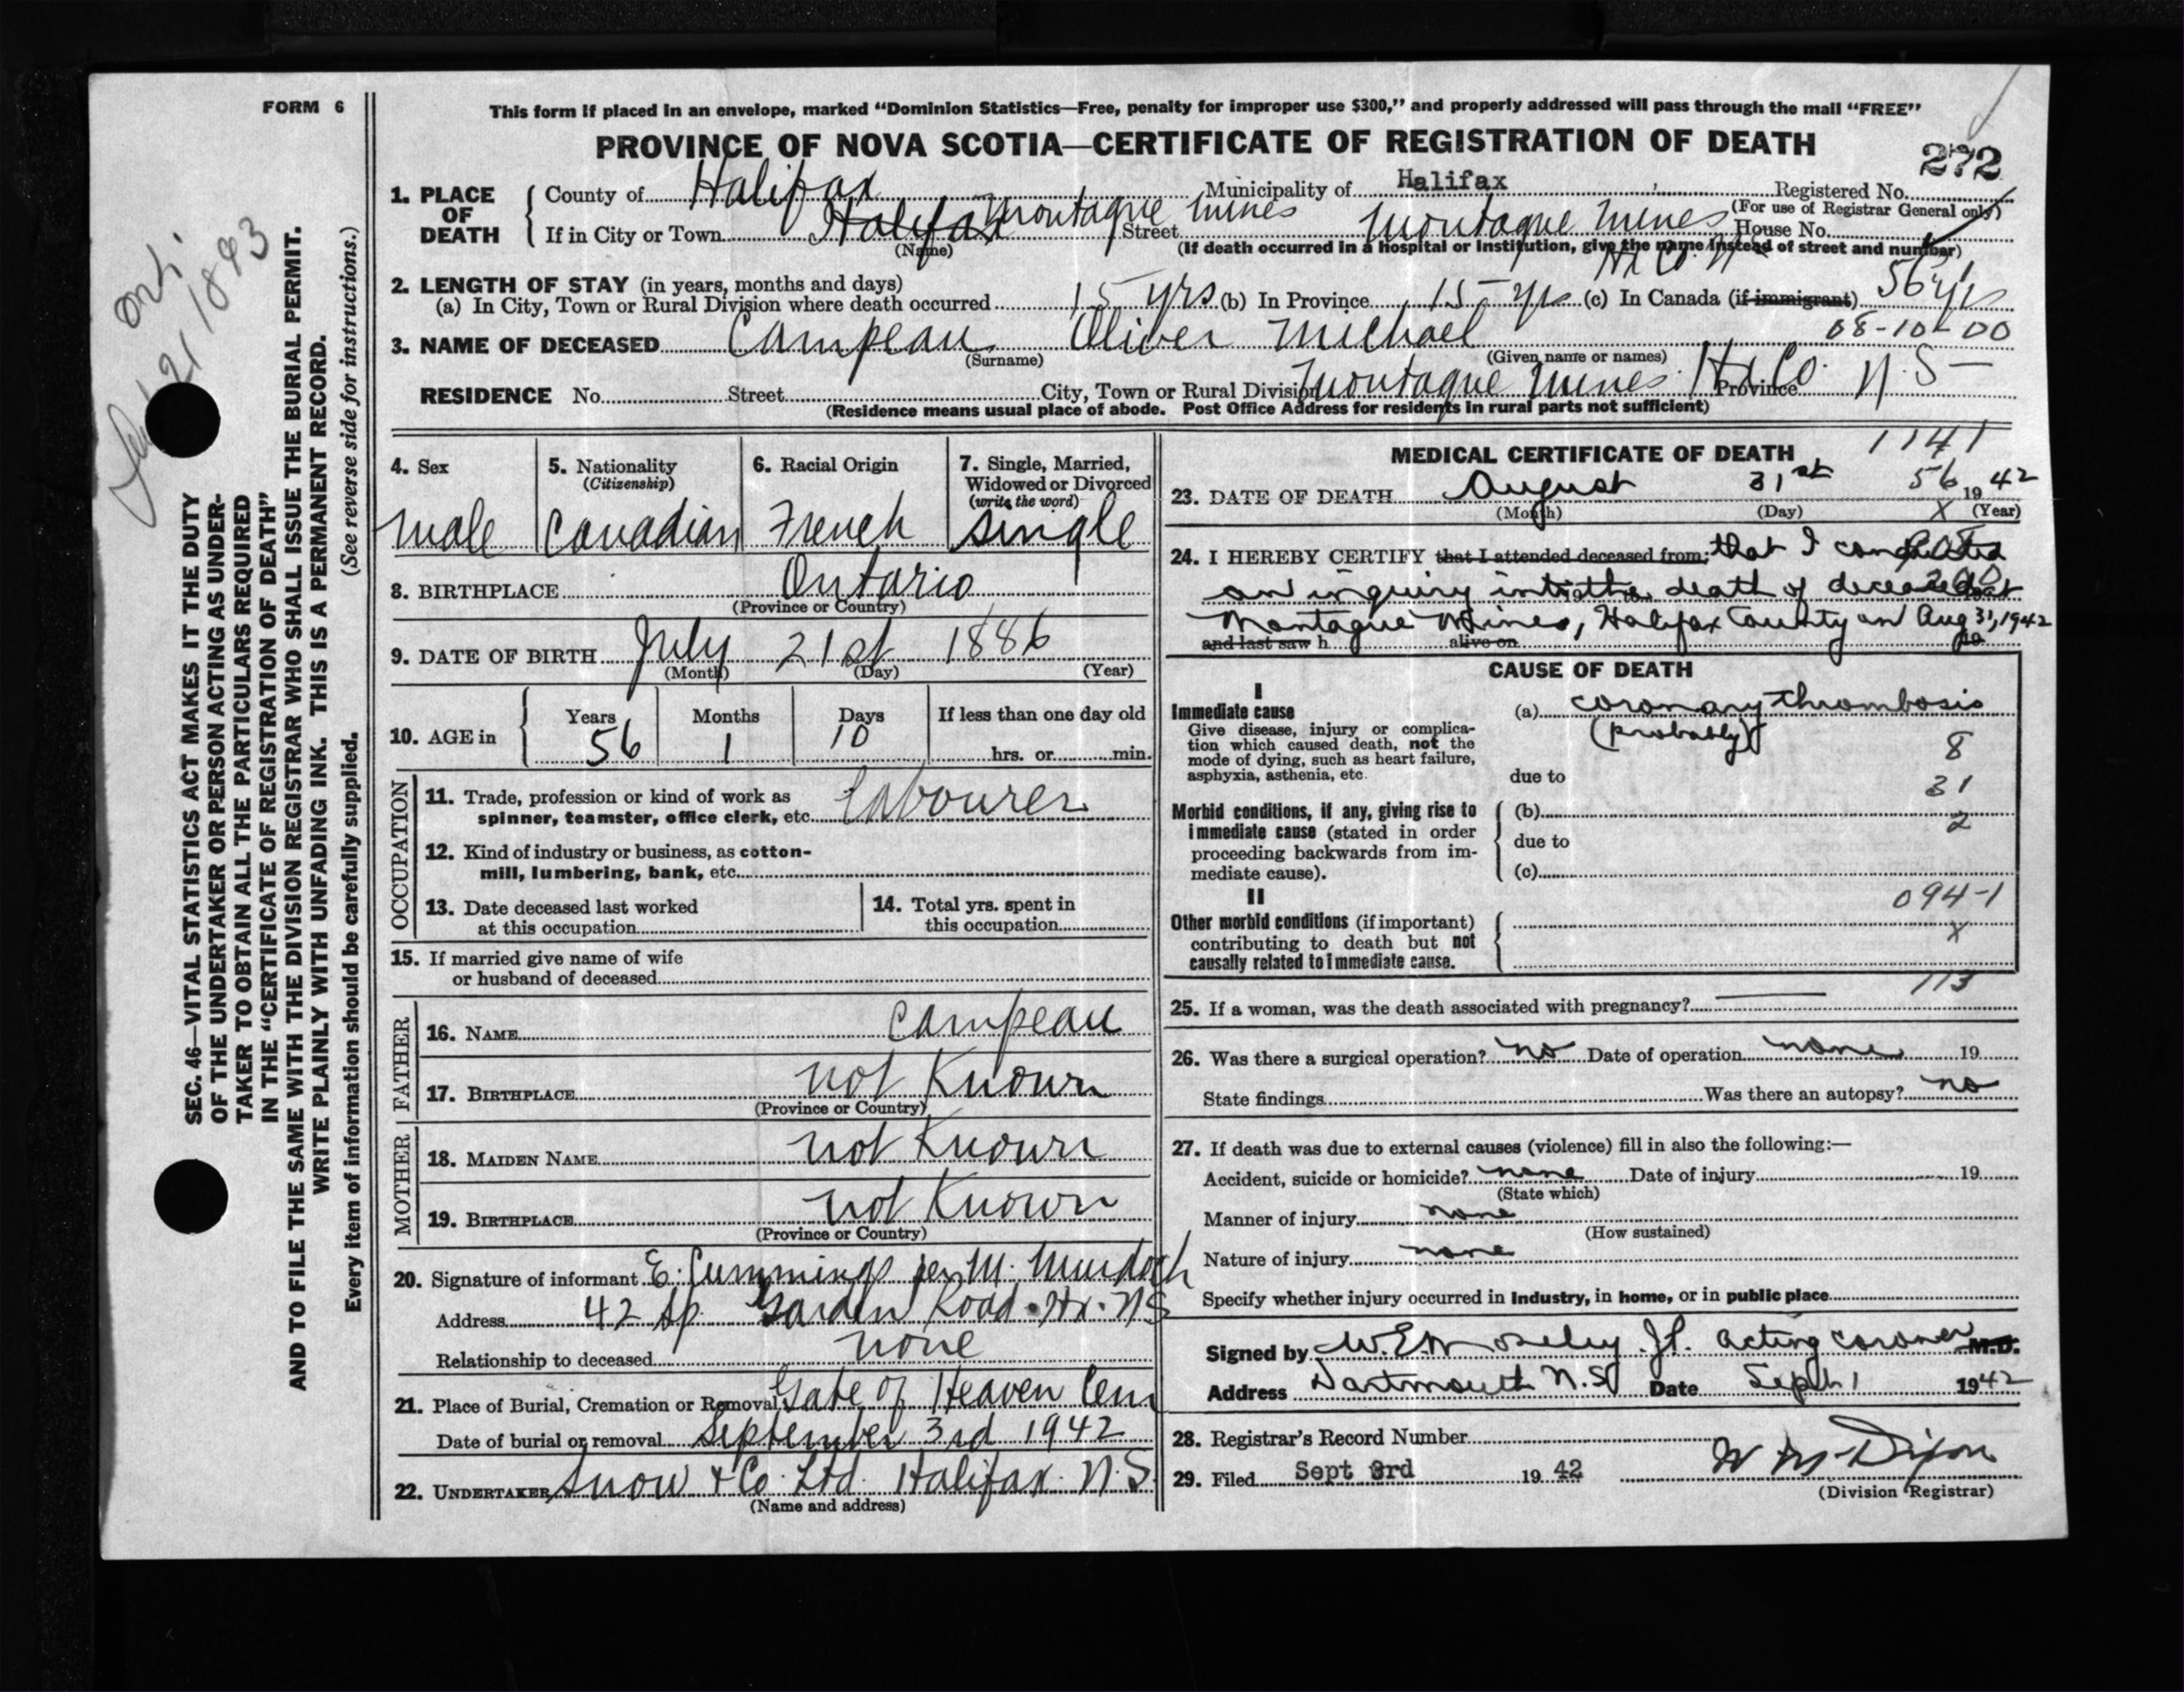 FORM 6
This form if placed in an envelope, marked “Dominion Statistics—Free, penalty for improper use $300,” and properly addressed will pass through the mail “FREE”
PROVINCE OF NOVA SCOTIA—CERTIFICATE OF REGISTRATION OF DEATH
272
1. PLACE OF DEATH
County of Halifax Municipality of Halifax Registered No.
(For use of Registrar General only)
If in City or Town Halifax Montague Mines Street Montague Mines House No.
(Name) (If death occurred in a hospital or institution, give the name instead of street and number)
Hx Co. N
2. LENGTH OF STAY (in years, months and days)
(a) In City, Town or Rural Division where death occurred 15 yrs (b) In Province 15 yrs (c) In Canada (if immigrant) 56 yrs
08-10-00
3. NAME OF DECEASED Campeau Oliver Michael
(Surname) (Given name or names)
RESIDENCE No. Street City, Town or Rural Division Montague Mines Hx Co. Province N.S—
(Residence means usual place of abode. Post Office Address for residents in rural parts not sufficient)
4. Sex
male
5. Nationality
(Citizenship)
Canadian
6. Racial Origin
French
7. Single, Married,
Widowed or Divorced
(write the word)
single
8. BIRTHPLACE Ontario
(Province or Country)
9. DATE OF BIRTH July 21st 1886
(Month) (Day) (Year)
10. AGE in Years 56 Months 1 Days 10 If less than one day old
hrs. or min.
OCCUPATION
11. Trade, profession or kind of work as
spinner, teamster, office clerk, etc. Labourer
12. Kind of industry or business, as cotton-
mill, lumbering, bank, etc.
13. Date deceased last worked
at this occupation
14. Total yrs. spent in
this occupation
15. If married give name of wife
or husband of deceased
FATHER
16. NAME Campeau
17. BIRTHPLACE not Known
(Province or Country)
MOTHER
18. MAIDEN NAME not Known
19. BIRTHPLACE not Known
(Province or Country)
20. Signature of informant E. Cummings per M. Murdoch
Address 42 Sp. Garden Road. Hx. N S
Relationship to deceased none
21. Place of Burial, Cremation or Removal Gate of Heaven Cem
Date of burial or removal September 3rd 1942
22. UNDERTAKER Snow & Co. Ltd. Halifax. N.S.
(Name and address)
MEDICAL CERTIFICATE OF DEATH
1141
23. DATE OF DEATH August 31st 1942
56
(Month) (Day) X (Year)
24. I HEREBY CERTIFY that I attended deceased from: that I conducted
an inquiry into the death of deceased at
Montague Mines, Halifax County on Aug 31, 1942
and last saw h alive on 19
CAUSE OF DEATH
I
Immediate cause
Give disease, injury or complica-
tion which caused death, not the
mode of dying, such as heart failure,
asphyxia, asthenia, etc.
(a) coronary thrombosis
(probably)
8
due to
31
Morbid conditions, if any, giving rise to
immediate cause (stated in order
proceeding backwards from im-
mediate cause).
(b)
2
due to
(c)
II
094-1
Other morbid conditions (if important)
contributing to death but not
causally related to immediate cause.
X
113
25. If a woman, was the death associated with pregnancy?
26. Was there a surgical operation? no Date of operation none 19
State findings Was there an autopsy? no
27. If death was due to external causes (violence) fill in also the following:—
Accident, suicide or homicide? none Date of injury 19
(State which)
Manner of injury none
(How sustained)
Nature of injury none
Specify whether injury occurred in industry, in home, or in public place
Signed by W. E. Moseley J.P. acting coroner M.D.
Address Dartmouth N.S Date Sept 1 1942
28. Registrar's Record Number
29. Filed Sept 3rd 1942 W M Dixon
(Division Registrar)
SEC. 46—VITAL STATISTICS ACT MAKES IT THE DUTY
OF THE UNDERTAKER OR PERSON ACTING AS UNDER-
TAKER TO OBTAIN ALL THE PARTICULARS REQUIRED
IN THE “CERTIFICATE OF REGISTRATION OF DEATH”
AND TO FILE THE SAME WITH THE DIVISION REGISTRAR WHO SHALL ISSUE THE BURIAL PERMIT.
WRITE PLAINLY WITH UNFADING INK. THIS IS A PERMANENT RECORD.
Every item of information should be carefully supplied. (See reverse side for instructions.)
Ont.
21 1893